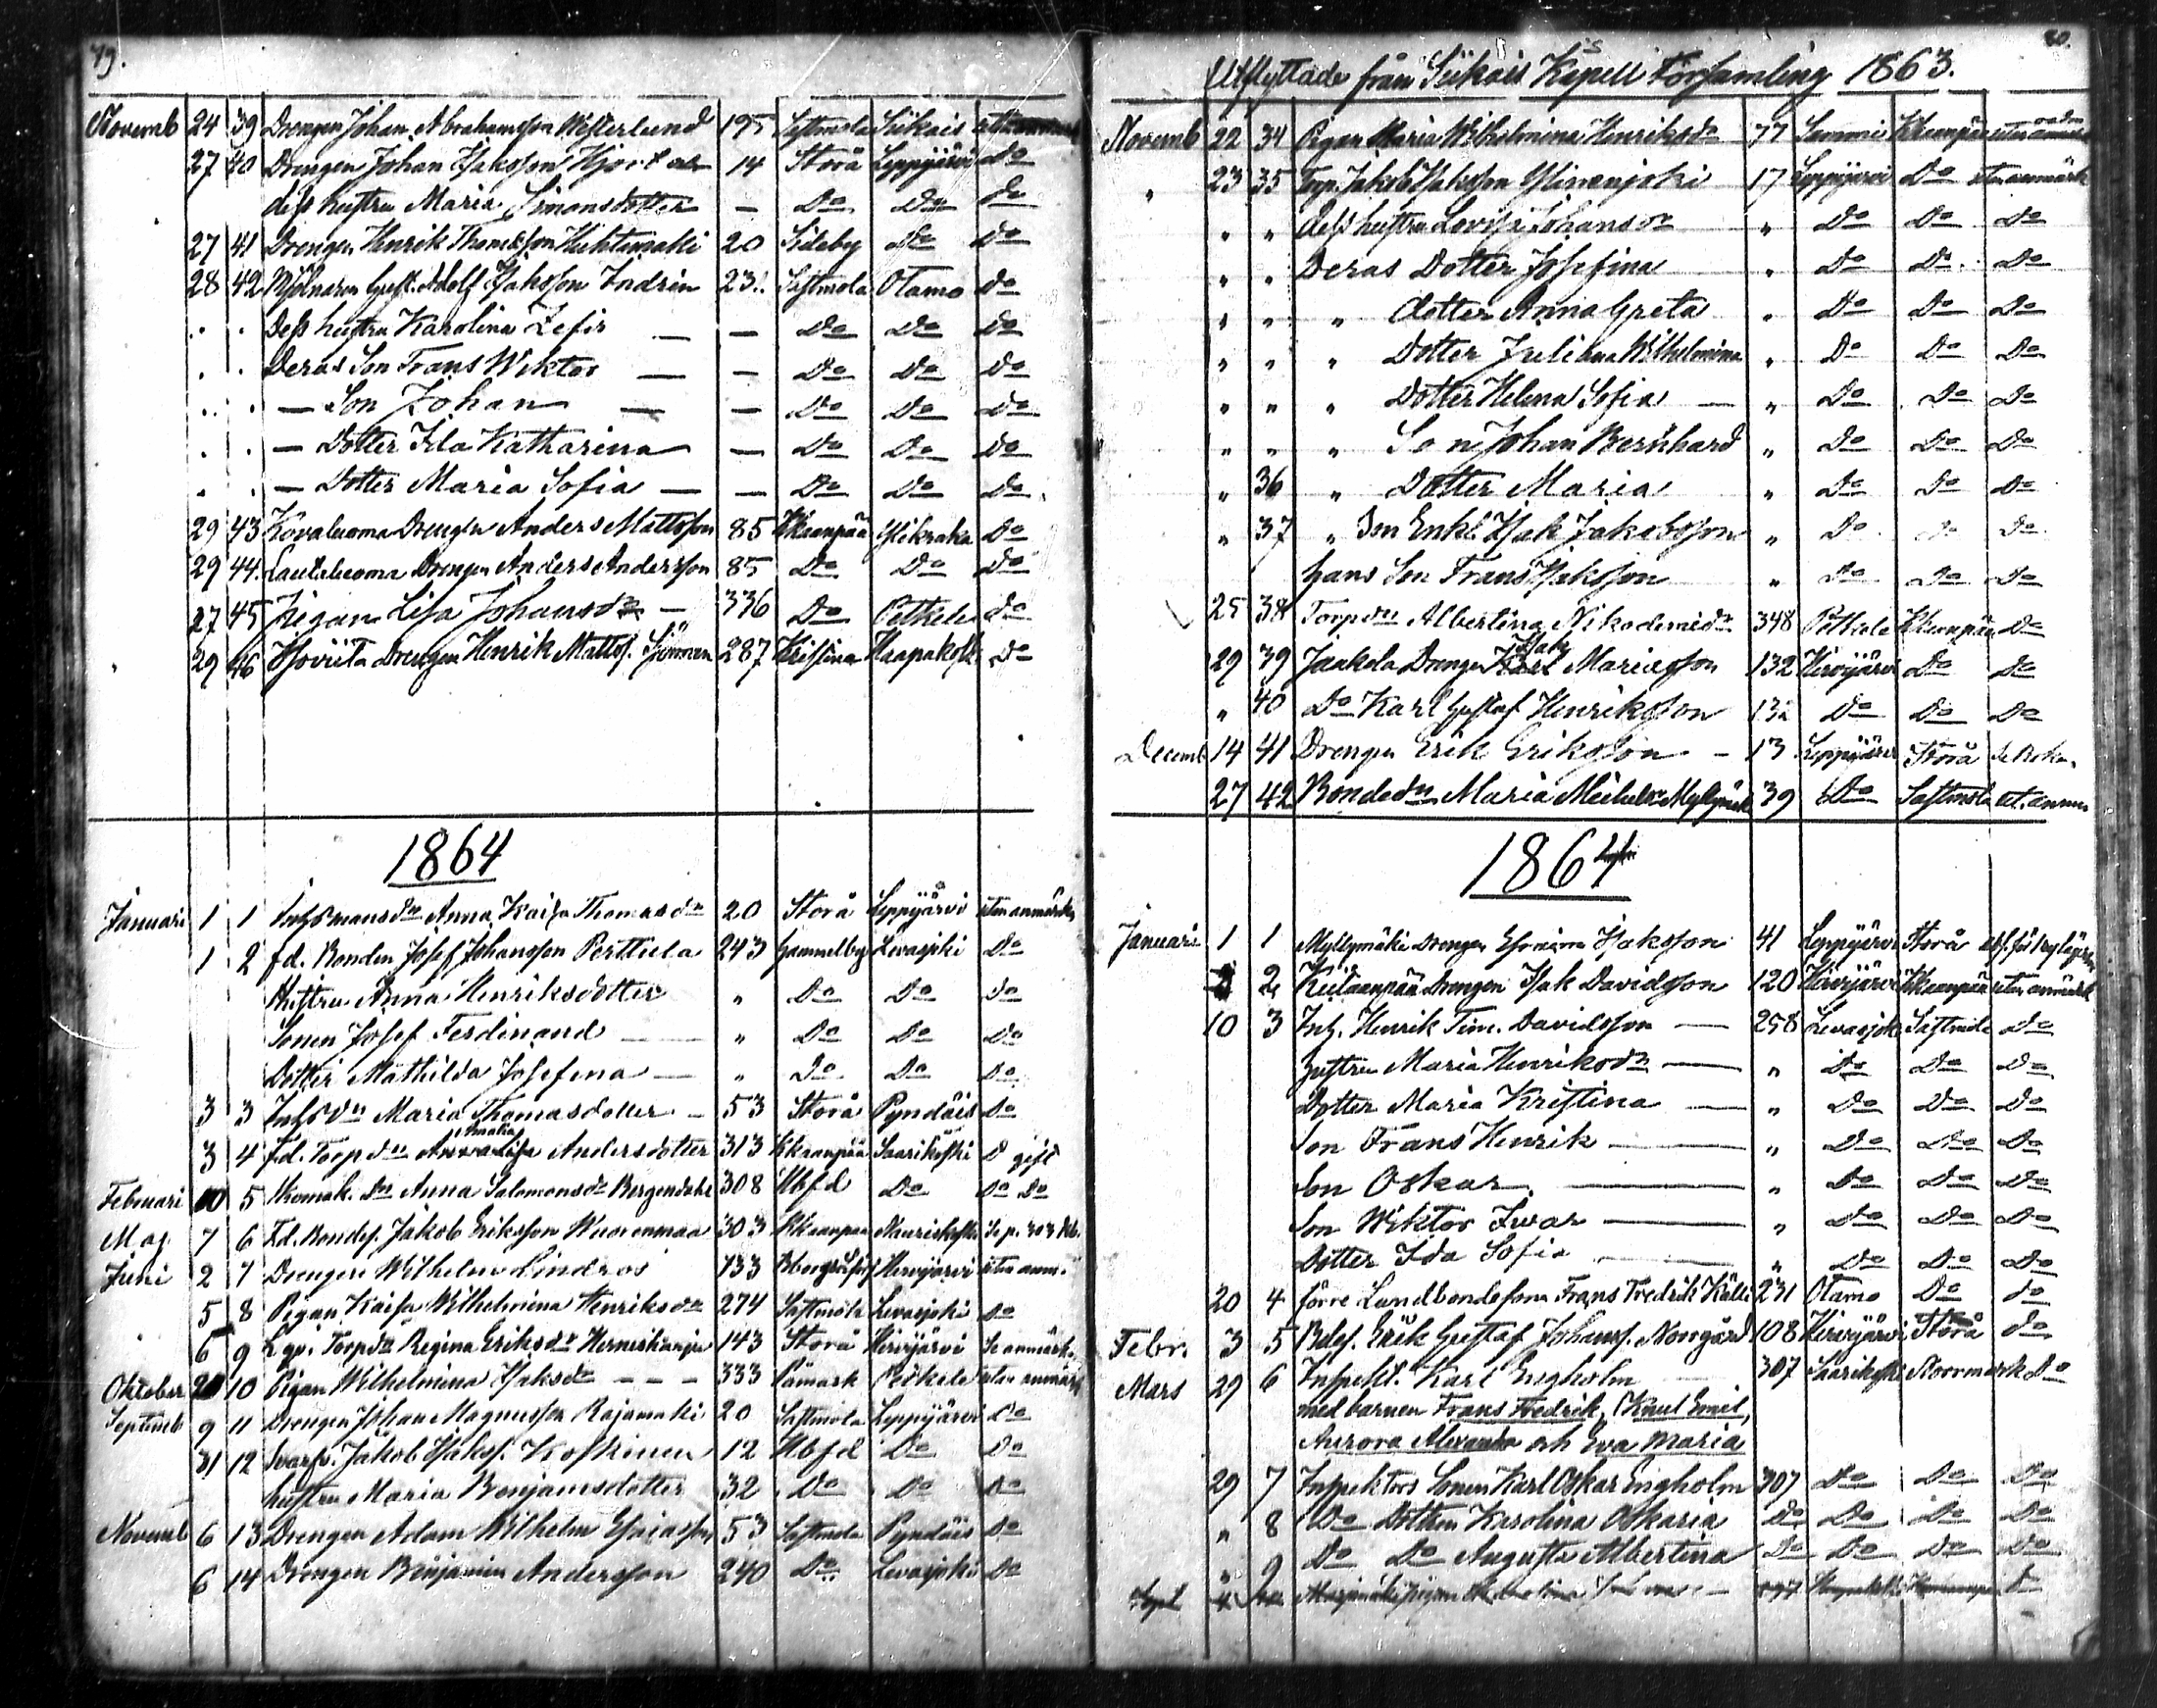 79.
Novemb 24 39 Drengen Johan Abrahamsson Westerlund 195 Sastmola Siikais utan
27 40 Drengen Johan Isaksson Hjort 14 Storå Leppijärvi Do
dess hustru Maria Simonsdotter — Do Do Do
27 41 Drengen Henrik Thomasson Huhtamaki 20 Sideby Do Do
28 42 Mjölnaren Gust. Adolf Isaksson Indrén 231 Sastmola Otamo Do
Dess hustru Karolina Zefir — — Do Do Do
Deras Son Frans Wiktor — — Do Do Do
— Son Johan — — Do Do Do
— Dotter Ida Katharina — Do Do Do
— Dotter Maria Sofia — — Do Do Do
29 43 Kovaluoma Drengen Anders Mattsson 85 Kkaanpää Do
29 44 Lautaluoma Drengen Anders Andersson 85 Do Do Do
27 45 Pigan Lisa Johansdr — 336 Do Pethele Do
29 46 Drengen Henrik Matts. 287 Kristina Haapakoski Do
1864
Januari 1 1 Inhysmansdr Anna Kaisa Thomasdr 20 Storå Leppyärvi utan anmärk
1 2 fd. Bonden Josef Johansson Perttula 243 Gammelby Levasjoki Do
Hustru Anna Henriksdotter " Do Do Do
Sonen Josef Ferdinand — " Do Do Do
Dotter Mathilda Josefina — " Do Do Do
3 3 Inhysdr Maria Thomasdotter — 53 Storå Pyndäis Do
3 4 fd. Torpdr Amalia Anna Lisa Andersdotter 313 Kkaanpää Saarikoski D gift
Februari 10 5 Anna Salomonsdr Bergendahl 308 Ubfd Do Do Do
Maj 7 6 Fd. Bondes. Jakob Eriksson Wuorenmaa 303 Kkaanpää Se p. 303 Kb.
Juni 2 7 Drengen Wilhelm Lindros 133 Hirvijärvi utan anm.
5 8 Pigan Kaisa Wilhelmina Henriksdr 274 Sastmola Levasjoki Do
6 9 Torpdr Regina Eriksdr 143 Storå Hirvijärvi Se anmärk.
Oktober 20 10 Pigan Wilhelmina Isaksdr - - - 333 Påmark utan anmärk
Septemb 9 11 Drengen Johan Magnusson Rajamaki 20 Sastmola Leppyärvi Do
31 12 Svarfv. Jakob Isakss. Koskinen 12 Ubfd Do Do
hustru Maria Benjamsdotter 32 Do Do Do
Novemb 6 13 Drengen Adam Wilhelm Esaiasson 53 Sastmola Pyndäis Do
6 14 Drengen Benjamin Andersson 240 Do Levasjoki Do
80.
Utflyttade från Siikais Kapell Församling 1863.
Novemb 22 34 Pigan Maria Wilhelmina Henriksdr 77 Sammi Kkaanpää utan anmärk
" 23 35 Torp. Jakob Isaksson Ylinenjoki 17 Leppijärvi Do utan anmärk
" " dess hustru Lovisa Johansdr " Do Do Do
" " Deras Dotter Josefina " Do Do Do
" " " dotter Anna Greta " Do Do Do
" " " Dotter Juliana Wilhelmina " Do Do Do
" " " Dotter Helena Sofia — " Do Do Do
" " " Son Johan Bernhard " Do Do Do
" 36 " Dotter Maria " Do Do Do
" 37 " Son Enkl. Isak Jakobsson " Do Do Do
hans Son Frans Isaksson " Do Do Do
25 38 Torpdr Albertina Nikodemidr 348 Pethele Kkaanpää Do
29 39 Jaakola Drengen Isak Mariasson 132 Hirvijärvi Do Do
" 40 Do Karl Gustaf Henriksson 132 Do Do Do
Decemb 14 41 Drengen Erik Eriksson — 13 Leppijärvi Storå
27 42 Bondedr Maria Michelsdr Myllymäki 39 Do Sastmola
1864
Januari 1 1 Myllymäki Drengen Efraim Isaksson 41 Leppijärvi Storå
2 Drengen Isak Davidsson 120 Hirvijärvi Kkaanpää utan anmärk
10 3 Inh. Henrik Tim. Davidsson — 258 Levasjoki Sastmola Do
hustru Maria Henriksdr — " Do Do Do
Dotter Maria Kristina — " Do Do Do
Son Frans Henrik — " Do Do Do
Son Oskar — " Do Do Do
Son Wiktor Iwar — " Do Do Do
Dotter Ida Sofia — " Do Do Do
20 4 förre Landbondesonen Frans Fredrik Källi 231 Otamo Do Do
Febr. 3 5 Erik Gustaf Johanss. Norrgård 108 Hirvijärvi Storå Do
Mars 29 6 Inspekt. Karl Engholm 307 Saarikoski Norrmark Do
med barnen Frans Fredrik, Knut Emil,
Aurora Alexandra och Eva Maria
29 7 Inspektors Sonen Karl Oskar Engholm 307 Do Do Do
" 8 Do Dottren Karolina Oskaria Do Do Do Do
" 9 Do Do Augusta Albertina Do Do Do Do
Sept